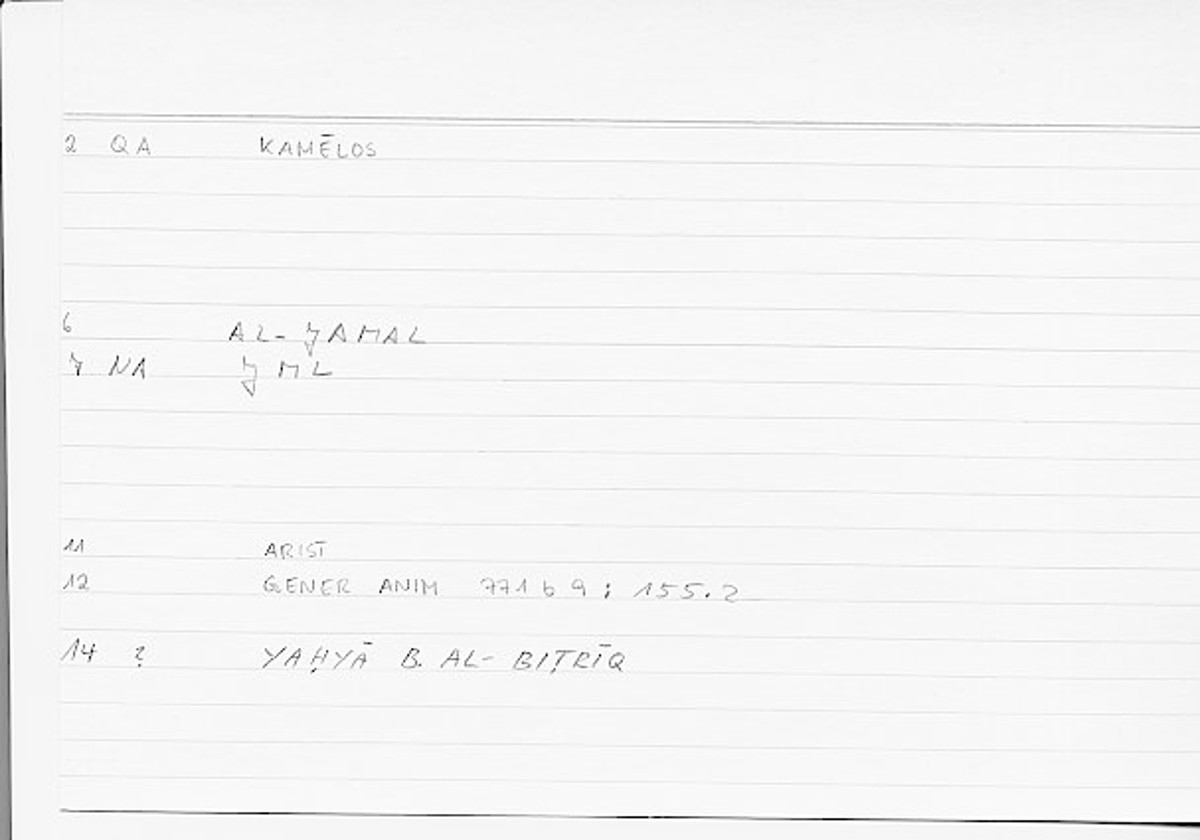 2 QA KAMĒLOS
6 AL-JAMAL
7 NA JML
11 ARIST
12 GENER ANIM 771 b 9 : 155.2
14 ? YAḤYĀ B. AL-BIṬRĪQ